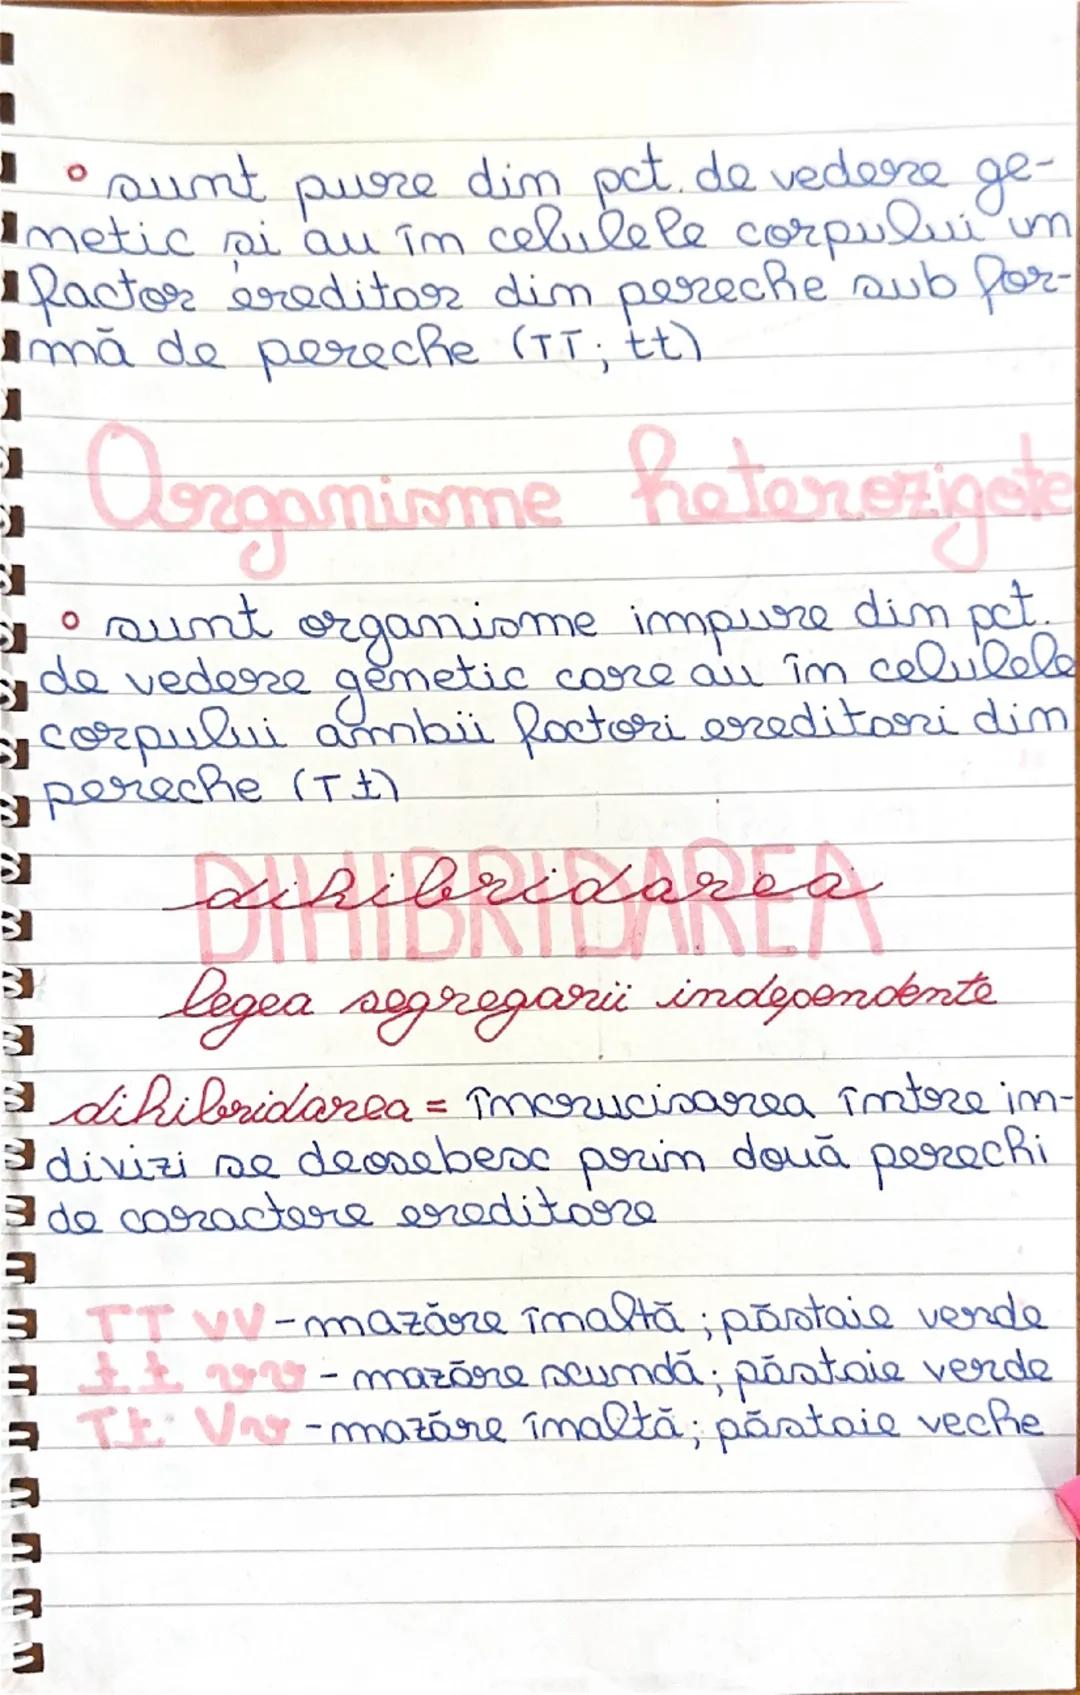 • sunt pure din pct. de vedere ge-
netic și au în celulele corpului un
factor ereditar din pereche sub for-
mă de pereche (TT; tt)
Organisme heterozigote
• sunt organisme impure din pct.
de vedere genetic care au în celulele
corpului ambii factori ereditari din
pereche (Tt)
DIHIBRIDAREA
dihibridarea
legea segregării independente
dihibridarea = încrucișarea între in-
divizi se deosebesc prin două perechi
de caractere ereditare
TT VV - mazăre înaltă; păstaie verde
tt vv - mazăre scundă; păstaie verde
Tt Vv - mazăre înaltă; păstaie veche